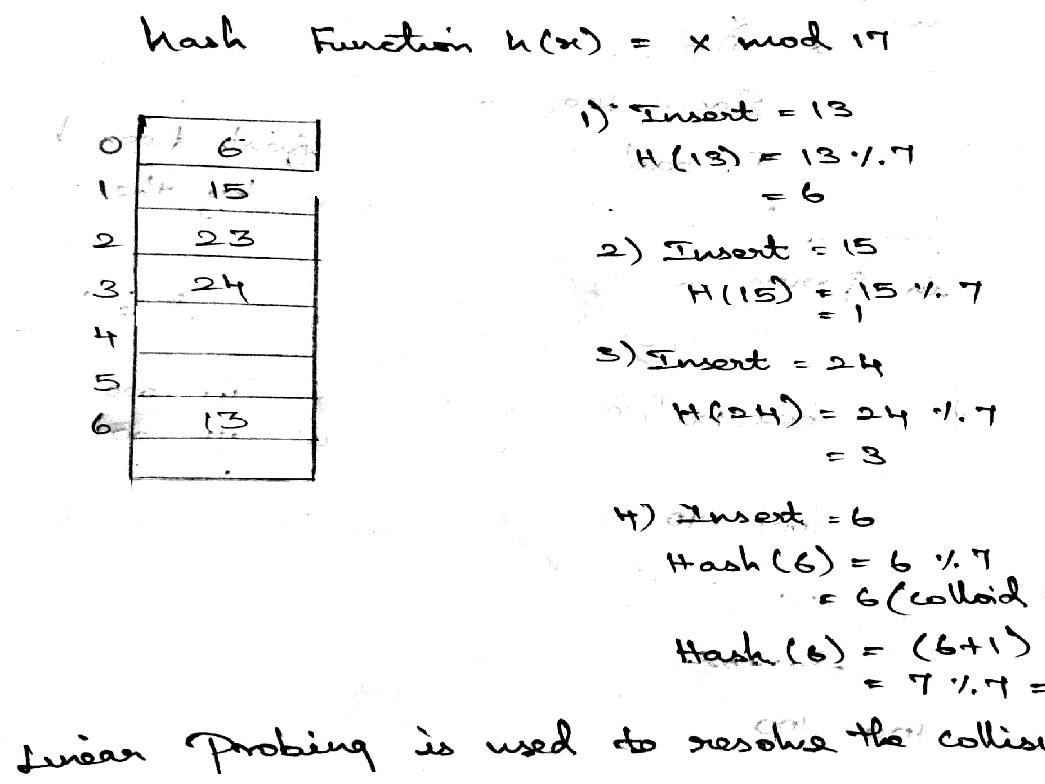 hash Function h(x) = x mod 17
0 6
1 15
2 23
3 24
4
5
6 13
1) Insert = 13
H(13) = 13 %. 7
= 6
2) Insert = 15
H(15) = 15 %. 7
= 1
3) Insert = 24
H(24) = 24 %. 7
= 3
4) Insert = 6
Hash (6) = 6 %. 7
= 6 (colloid
Hash (6) = (6+1)
= 7 %. 7 =
Linear Probing is used to resolve the collisi